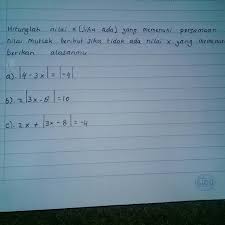 Hitunglah nilai x (jika ada) yang memenuhi persamaan
nilai mutlak berikut jika tidak ada nilai x yang memenuhi
berikan alasanmu
a). |4 - 3x| = |-4|
b). 2|3x - 8| = 10
c). 2x + |3x - 8| = -4